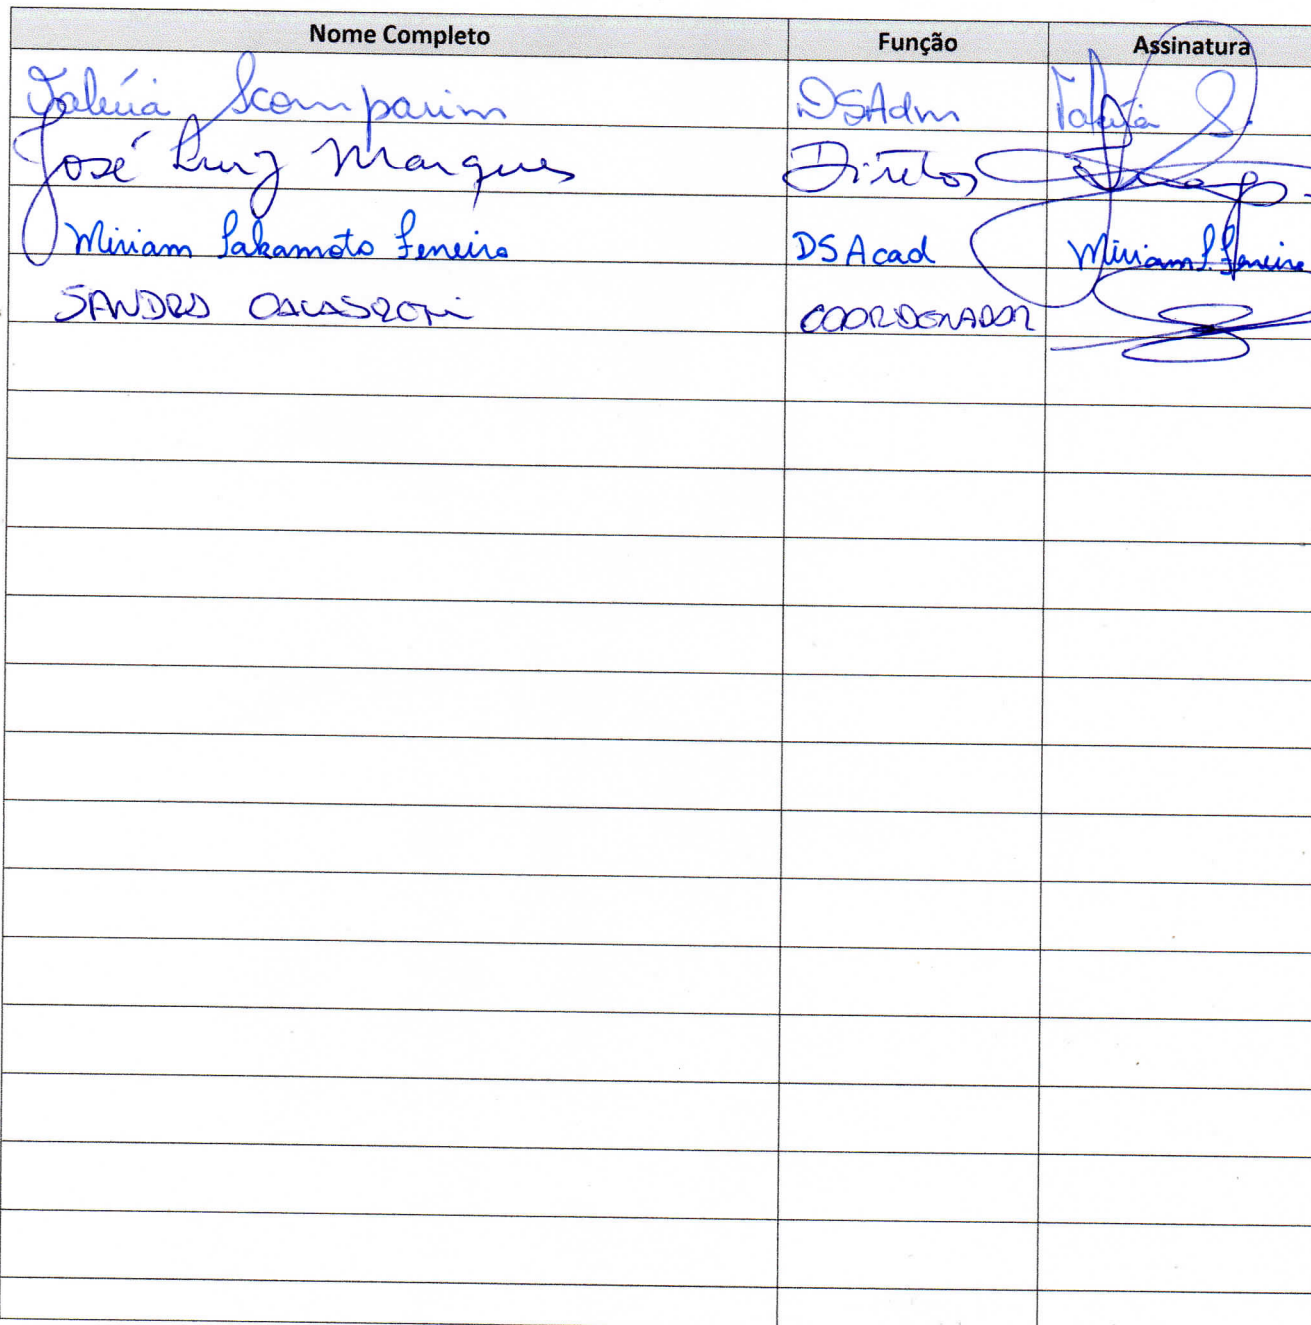 Nome Completo Função Assinatura
Valéria Scomparim DSAdm Valéria S.
José Luiz Marques Diretor
Miriam Sakamoto Ferreira DSAcad Miriam S. Ferreira
SANDRO COORDENADOR